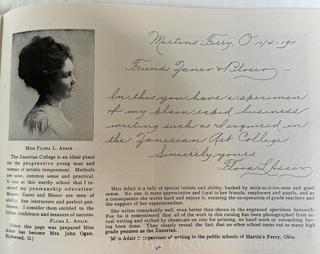 Martins Ferry, O 11/4-1911
Friends Zaner & Bloser
In this you have a specimen
of my plain rapid business
writing such as I acquired in
the Zanerian Art College.
Sincerely yours
Flora L. Adair
MISS FLORA L. ADAIR
The Zanerian College is an ideal place
for the progressive young man and
woman of artistic temperament. Methods
are sane, common sense and practical.
It was at this worthy school that I re-
ceived my penmanship education
Messrs. Zaner and Bloser are men of
ability, fine instructors and perfect gen-
tlemen. I consider them entitled to the
fullest confidence and measure of success.
FLORA L. ADAIR.
(Since this page was prepared Miss
Adair has become Mrs. John Ogan,
Kirkwood, O.)
Miss Adair is a lady of special talents and ability, backed by
No one is more appreciative and Loyal to her friends, employers and pupils, and as
a consequence she works hard and enjoys it, securing the co-operation of grade teachers and
the support of her superintendent.
She writes remarkably well, even better than shown in the engraved specimen herewith.
For be it remembered that all of the work in this catalog has been photographed from ac-
tual writing and etched by chemicals on zinc for printing, no hand work or retouching hav-
ing been done. They clearly reveal the fact that no other school turns out so many high
grade penmen as the Zanerian.
Miss Adair supervised writing in the public schools of Martin's Ferry, Ohio.